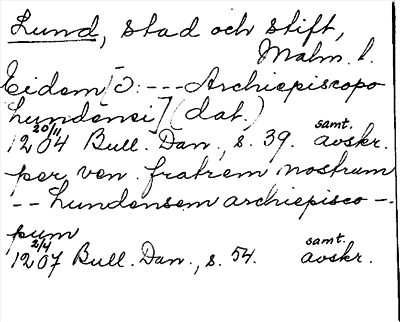 Lund, stad och stift,
Malm. l.
Eidem [ɔ: --- Archiepiscopo
Lundensi] (dat.)
20/11 1204 Bull. Dan., s. 39. samt. avskr.
per ven. fratrem nostrum
-- Lundensem archiepisco-
pum
2/4 1207 Bull. Dan., s. 54. samt. avskr.